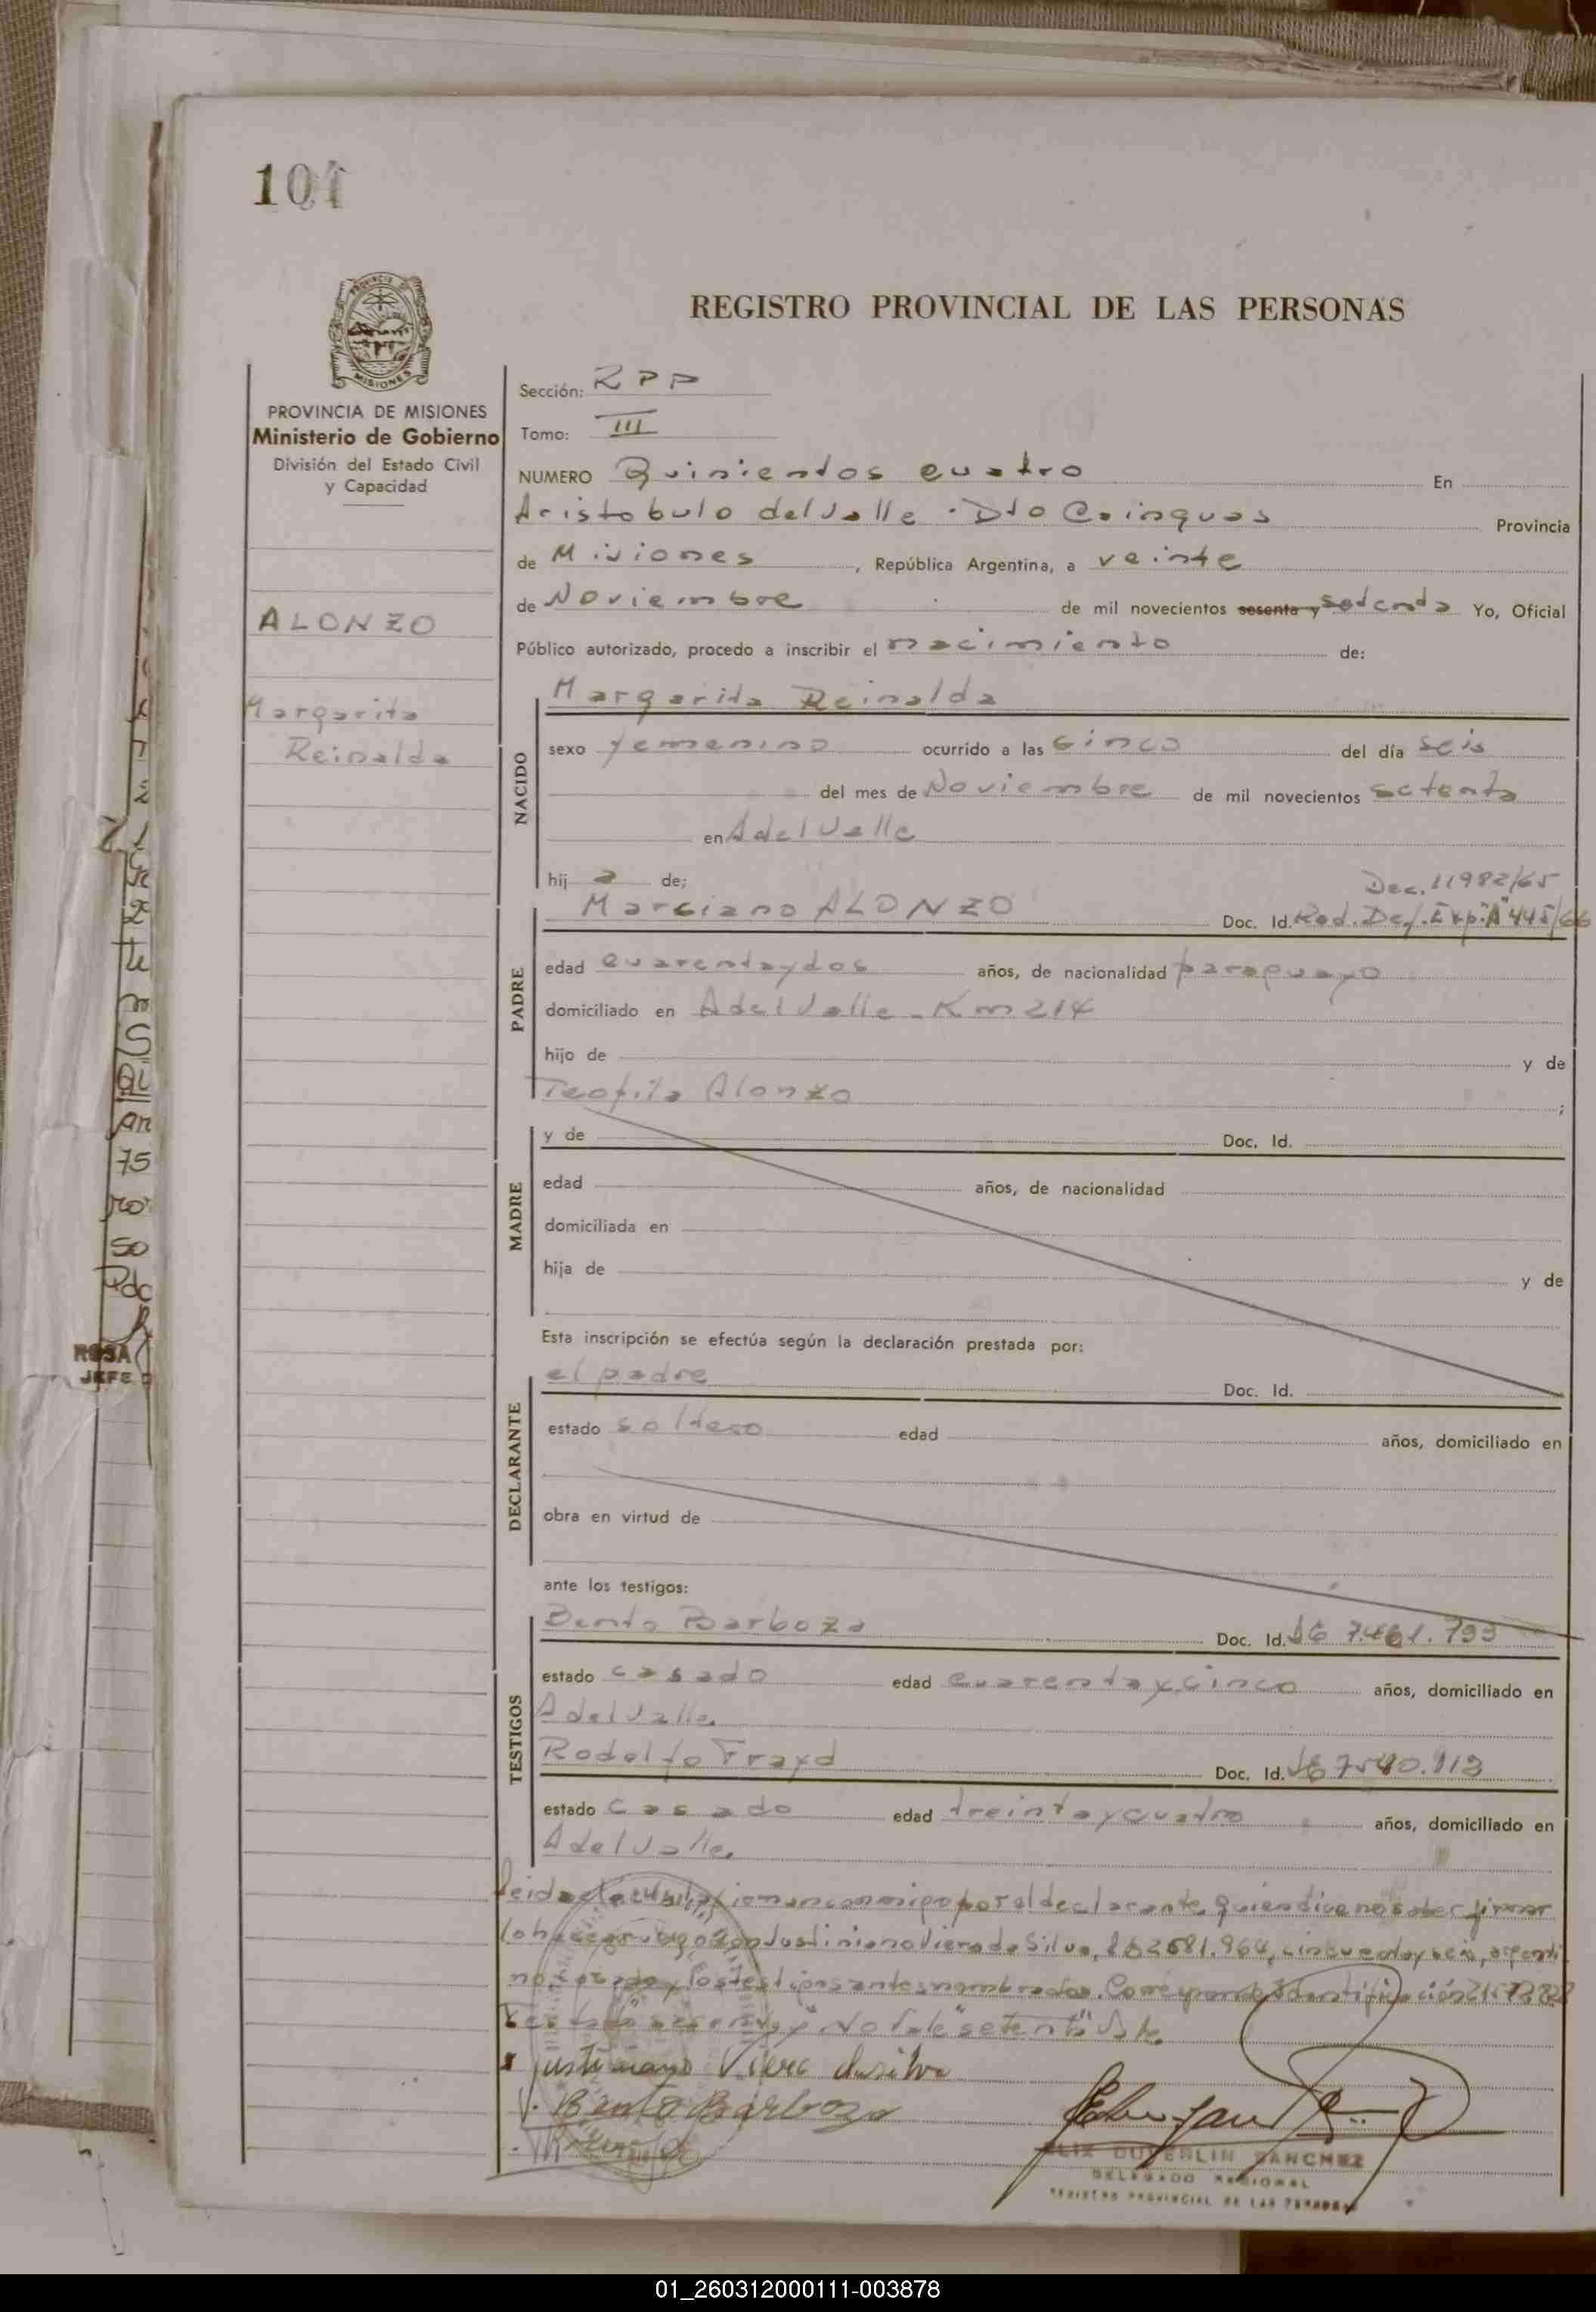 101
REGISTRO PROVINCIAL DE LAS PERSONAS
PROVINCIA DE MISIONES
Ministerio de Gobierno
División del Estado Civil
y Capacidad
ALONZO
Margarita
Reinalda
Sección: RPP
Tomo: III
NUMERO Quinientos cuatro En
Aristobulo del Valle - Dto Cainguas Provincia
de Misiones, República Argentina, a veinte
de Noviembre de mil novecientos sesenta y setenta Yo, Oficial
Público autorizado, procedo a inscribir el nacimiento de:
NACIDO
Margarita Reinalda
sexo femenino ocurrido a las cinco del día seis
del mes de Noviembre de mil novecientos setenta
en A del Valle
hij a de;
Dec. 11982/65
PADRE
Marciano ALONZO Doc. Id. Rad. Def. Exp. "A" 445/66
edad cuarenta y dos años, de nacionalidad paraguayo
domiciliado en A del Valle - Km 214
hijo de y de
Teofila Alonzo ;
MADRE
y de Doc. Id.
edad años, de nacionalidad
domiciliada en
hija de y de
Esta inscripción se efectúa según la declaración prestada por:
DECLARANTE
el padre Doc. Id.
estado soltero edad años, domiciliado en
obra en virtud de
ante los testigos:
TESTIGOS
Bento Barboza Doc. Id. 7.461.793
estado casado edad cuarenta y cinco años, domiciliado en
A del Valle
Rodolfo Frayd Doc. Id. 7540.113
estado casado edad treinta y cuatro años, domiciliado en
A del Valle
Leida el acta la firman conmigo por el declarante, quien dice no saber firmar
lo hace a ruego don Justiniano Viera da Silva, 2681.964, cincuenta y seis, argenti
no casado y los testigos antes nombrados. Corresponde Identificación
Testado "sesenta y" No Vale "setenta" Vale
Justiniano Viera dasilva
Bento Barboza
FELIX DUVERLIN SANCHEZ
DELEGADO REGIONAL
REGISTRO PROVINCIAL DE LAS PERSONAS
75
so
ROSA
JEFE
01_260312000111-003878